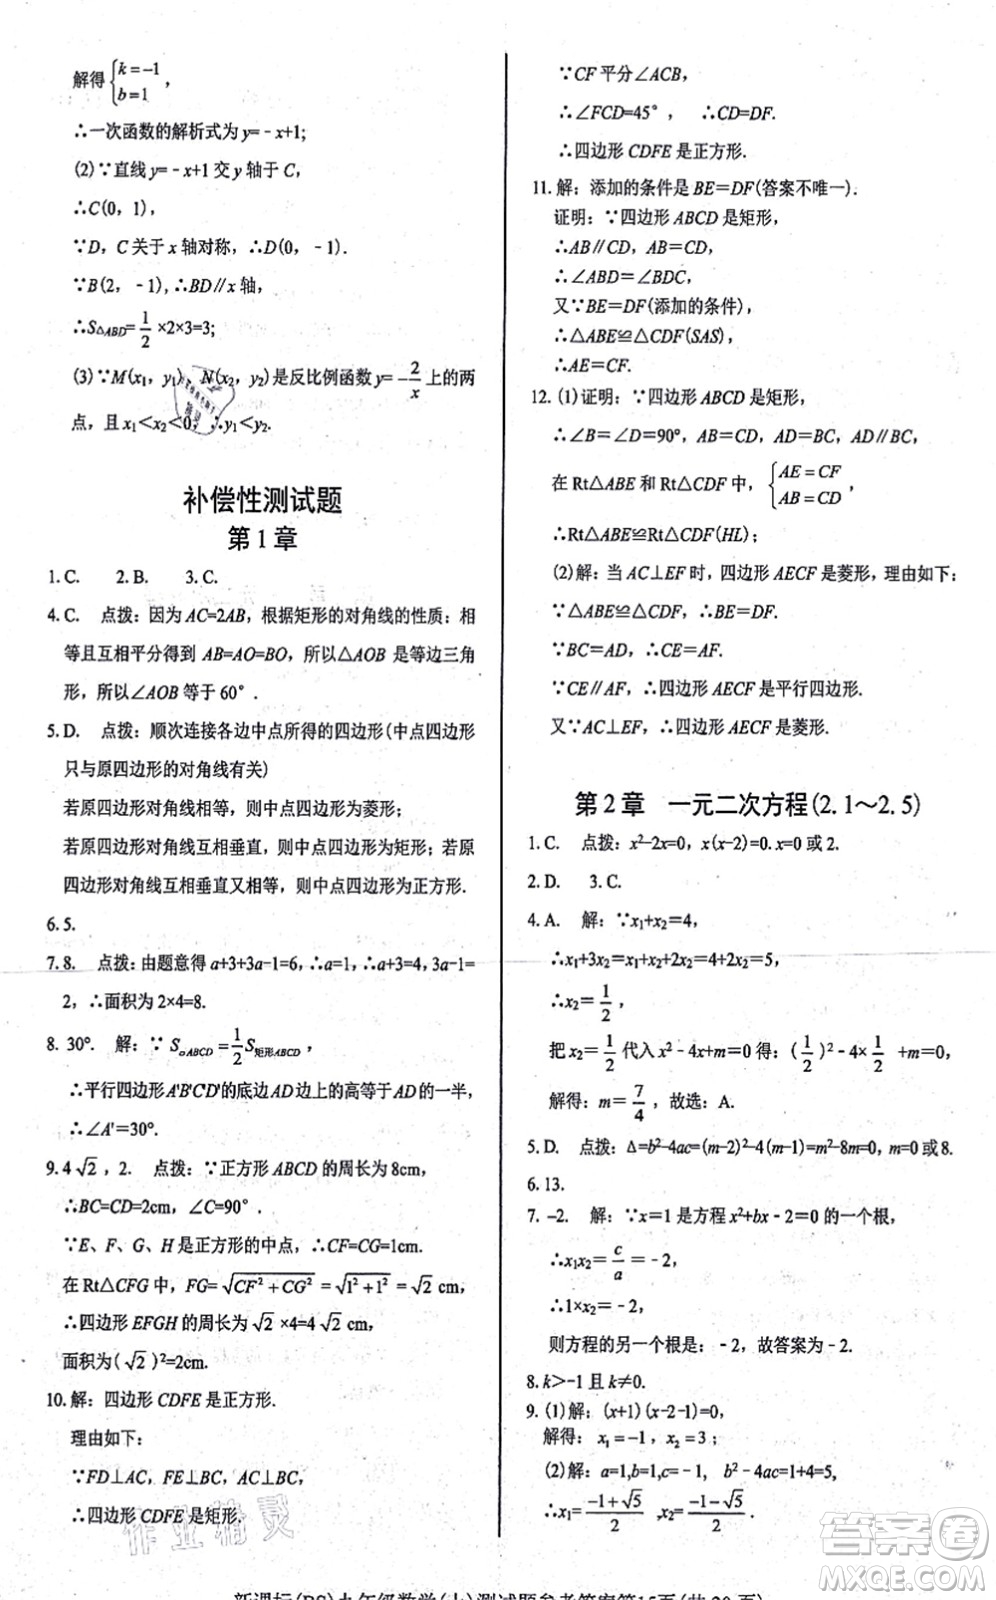 解得{k=-1
b=1 ,
∴一次函数的解析式为y=-x+1;
(2)∵直线y=-x+1交y轴于C,
∴C(0, 1),
∵D, C关于x轴对称, ∴D(0, -1).
∵B(2, -1), ∴BD∥x轴,
∴S△ABD=1/2×2×3=3;
(3)∵M(x₁, y₁), N(x₂, y₂)是反比例函数y=-2/x上的两
点, 且x₁<x₂<0, ∴y₁<y₂.
补偿性测试题
第1章
1.C. 2.B. 3.C.
4.C. 点拨: 因为AC=2AB, 根据矩形的对角线的性质: 相
等且互相平分得到AB=AO=BO, 所以△AOB是等边三角
形, 所以∠AOB等于60°.
5.D. 点拨: 顺次连接各边中点所得的四边形(中点四边形
只与原四边形的对角线有关)
若原四边形对角线相等, 则中点四边形为菱形;
若原四边形对角线互相垂直, 则中点四边形为矩形;
若原四边形对角线互相垂直又相等, 则中点四边形
四边形对角线互相垂直又相等, 则中点四边形为正方形.
6.5.
7.8. 点拨: 由题意得a+3+3a-1=6, ∴a=1, ∴a+3=4, 3a-1=
2, ∴面积为2×4=8.
8. 30°. 解: ∵ S▱ABCD=1/2S矩形ABCD,
∴平行四边形A'B'C'D'的底边AD边上的高等于AD的一半,
∴∠A'=30°.
9.4√2, 2. 点拨: ∵正方形ABCD的周长为8cm,
∴BC=CD=2cm, ∠C=90°.
∵E、F、G、H是正方形的中点, ∴CF=CG=1cm.
在Rt△CFG中, FG=√(CF²+CG²)=√(1²+1²)=√2cm,
∴四边形EFGH的周长为√2×4=4√2cm,
面积为(√2)²=2cm.
10.解: 四边形CDFE是正方形.
理由如下:
∵FD⊥AC, FE⊥BC, ∠ACB=90°,
∴四边形CDFE是矩形.
作业精灵
∵CF平分∠ACB,
∴∠FCD=45°, ∴CD=DF.
∴四边形CDFE是正方形.
11.解: 添加的条件是BE=DF(答案不唯一).
证明: ∵四边形ABCD是矩形,
∴AB∥CD, AB=CD,
∴∠ABD=∠BDC,
又∵BE=DF(添加的条件),
∴△ABE≌△CDF(SAS),
∴AE=CF.
12. (1)证明: ∵四边形ABCD是矩形,
∴∠B=∠D=90°, AB=CD, AD=BC, AD∥BC,
在Rt△ABE和Rt△CDF中, {AE=CF
AB=CD ,
∴Rt△ABE≌Rt△CDF(HL);
(2)解: 当AC⊥EF时, 四边形AECF是菱形, 理由如下:
∵△ABE≌△CDF, ∴BE=DF.
∵BC=AD, ∴CE=AF.
∵CE∥AF, ∴四边形AECF是平行四边形.
又∵AC⊥EF, ∴四边形AECF是菱形.
第2章 一元二次方程(2.1～2.5)
1.C. 点拨: x²-2x=0, x(x-2)=0. x=0或2.
2.D. 3.C.
4.A. 解: ∵x₁+x₂=4,
∴x₁+3x₂=x₁+x₂+2x₂=4+2x₂=5,
∴x₂=1/2,
把x₂=1/2代入x²-4x+m=0得: (1/2)²-4×1/2+m=0,
解得: m=7/4, 故选: A.
5.D. 点拨: Δ=b²-4ac=(m-2)²-4(m-1)=m²-8m=0, m=0或8.
6.13.
7. -2. 解: ∵x=1是方程x²+bx-2=0的一个根,
∴x₁x₂=c/a=-2,
∴1×x₂=-2,
则方程的另一个根是: -2, 故答案为-2.
8.k>-1且k≠0.
9. (1)解: (x+1)(x-2-1)=0,
解得: x₁=-1, x₂=3;
(2)解: a=1,b=1,c=-1, b²-4ac=1+4=5,
∴x₁=(-1+√5)/2, x₂=(-1-√5)/2.
新课标(BS)九年级数学(上)测试题参考答案第15页(共20页)
答案圈
MXQE.COM